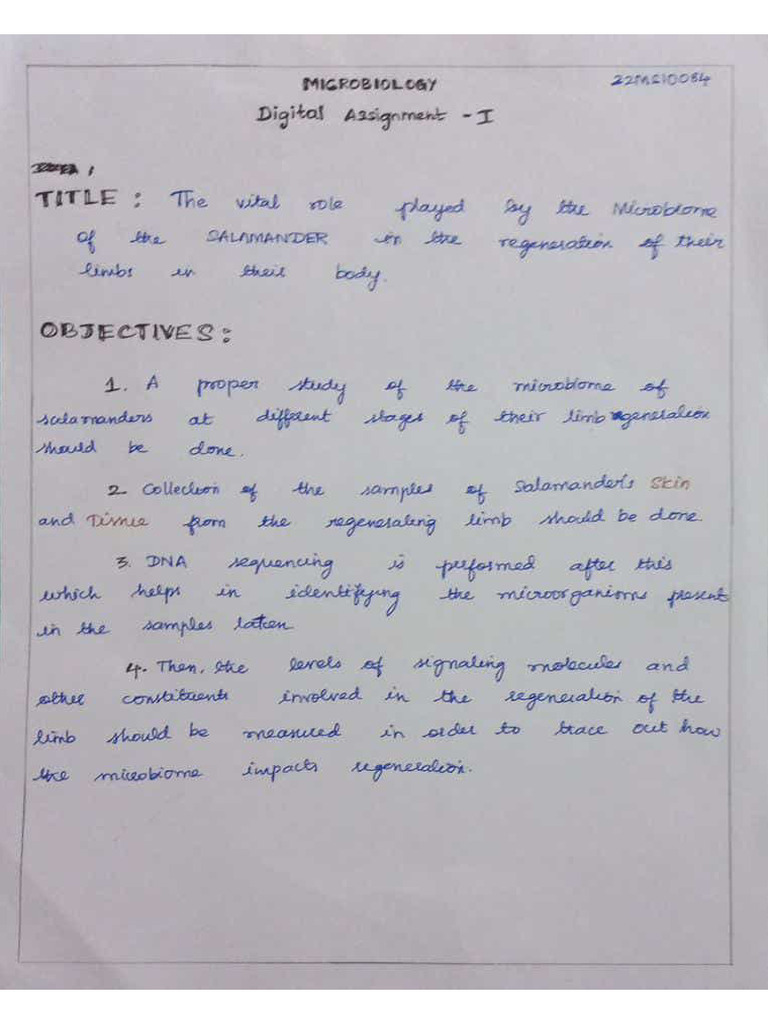 MICROBIOLOGY
Digital Assignment - I
TITLE : The vital role played by the Microbiome
of the SALAMANDER in the regeneration of their
limbs in their body.
OBJECTIVES :
1. A proper study of the microbiome of
salamanders at different stages of their limb regeneration
should be done.
2. Collection of the samples of Salamander's Skin
and Tissue from the regenerating limb should be done.
3. DNA sequencing is performed after this
which helps in identifying the microorganisms present
in the samples taken
4. Then, the levels of signaling molecules and
other constituents involved in the regeneration of the
limb should be measured in order to trace out how
the microbiome impacts regeneration.